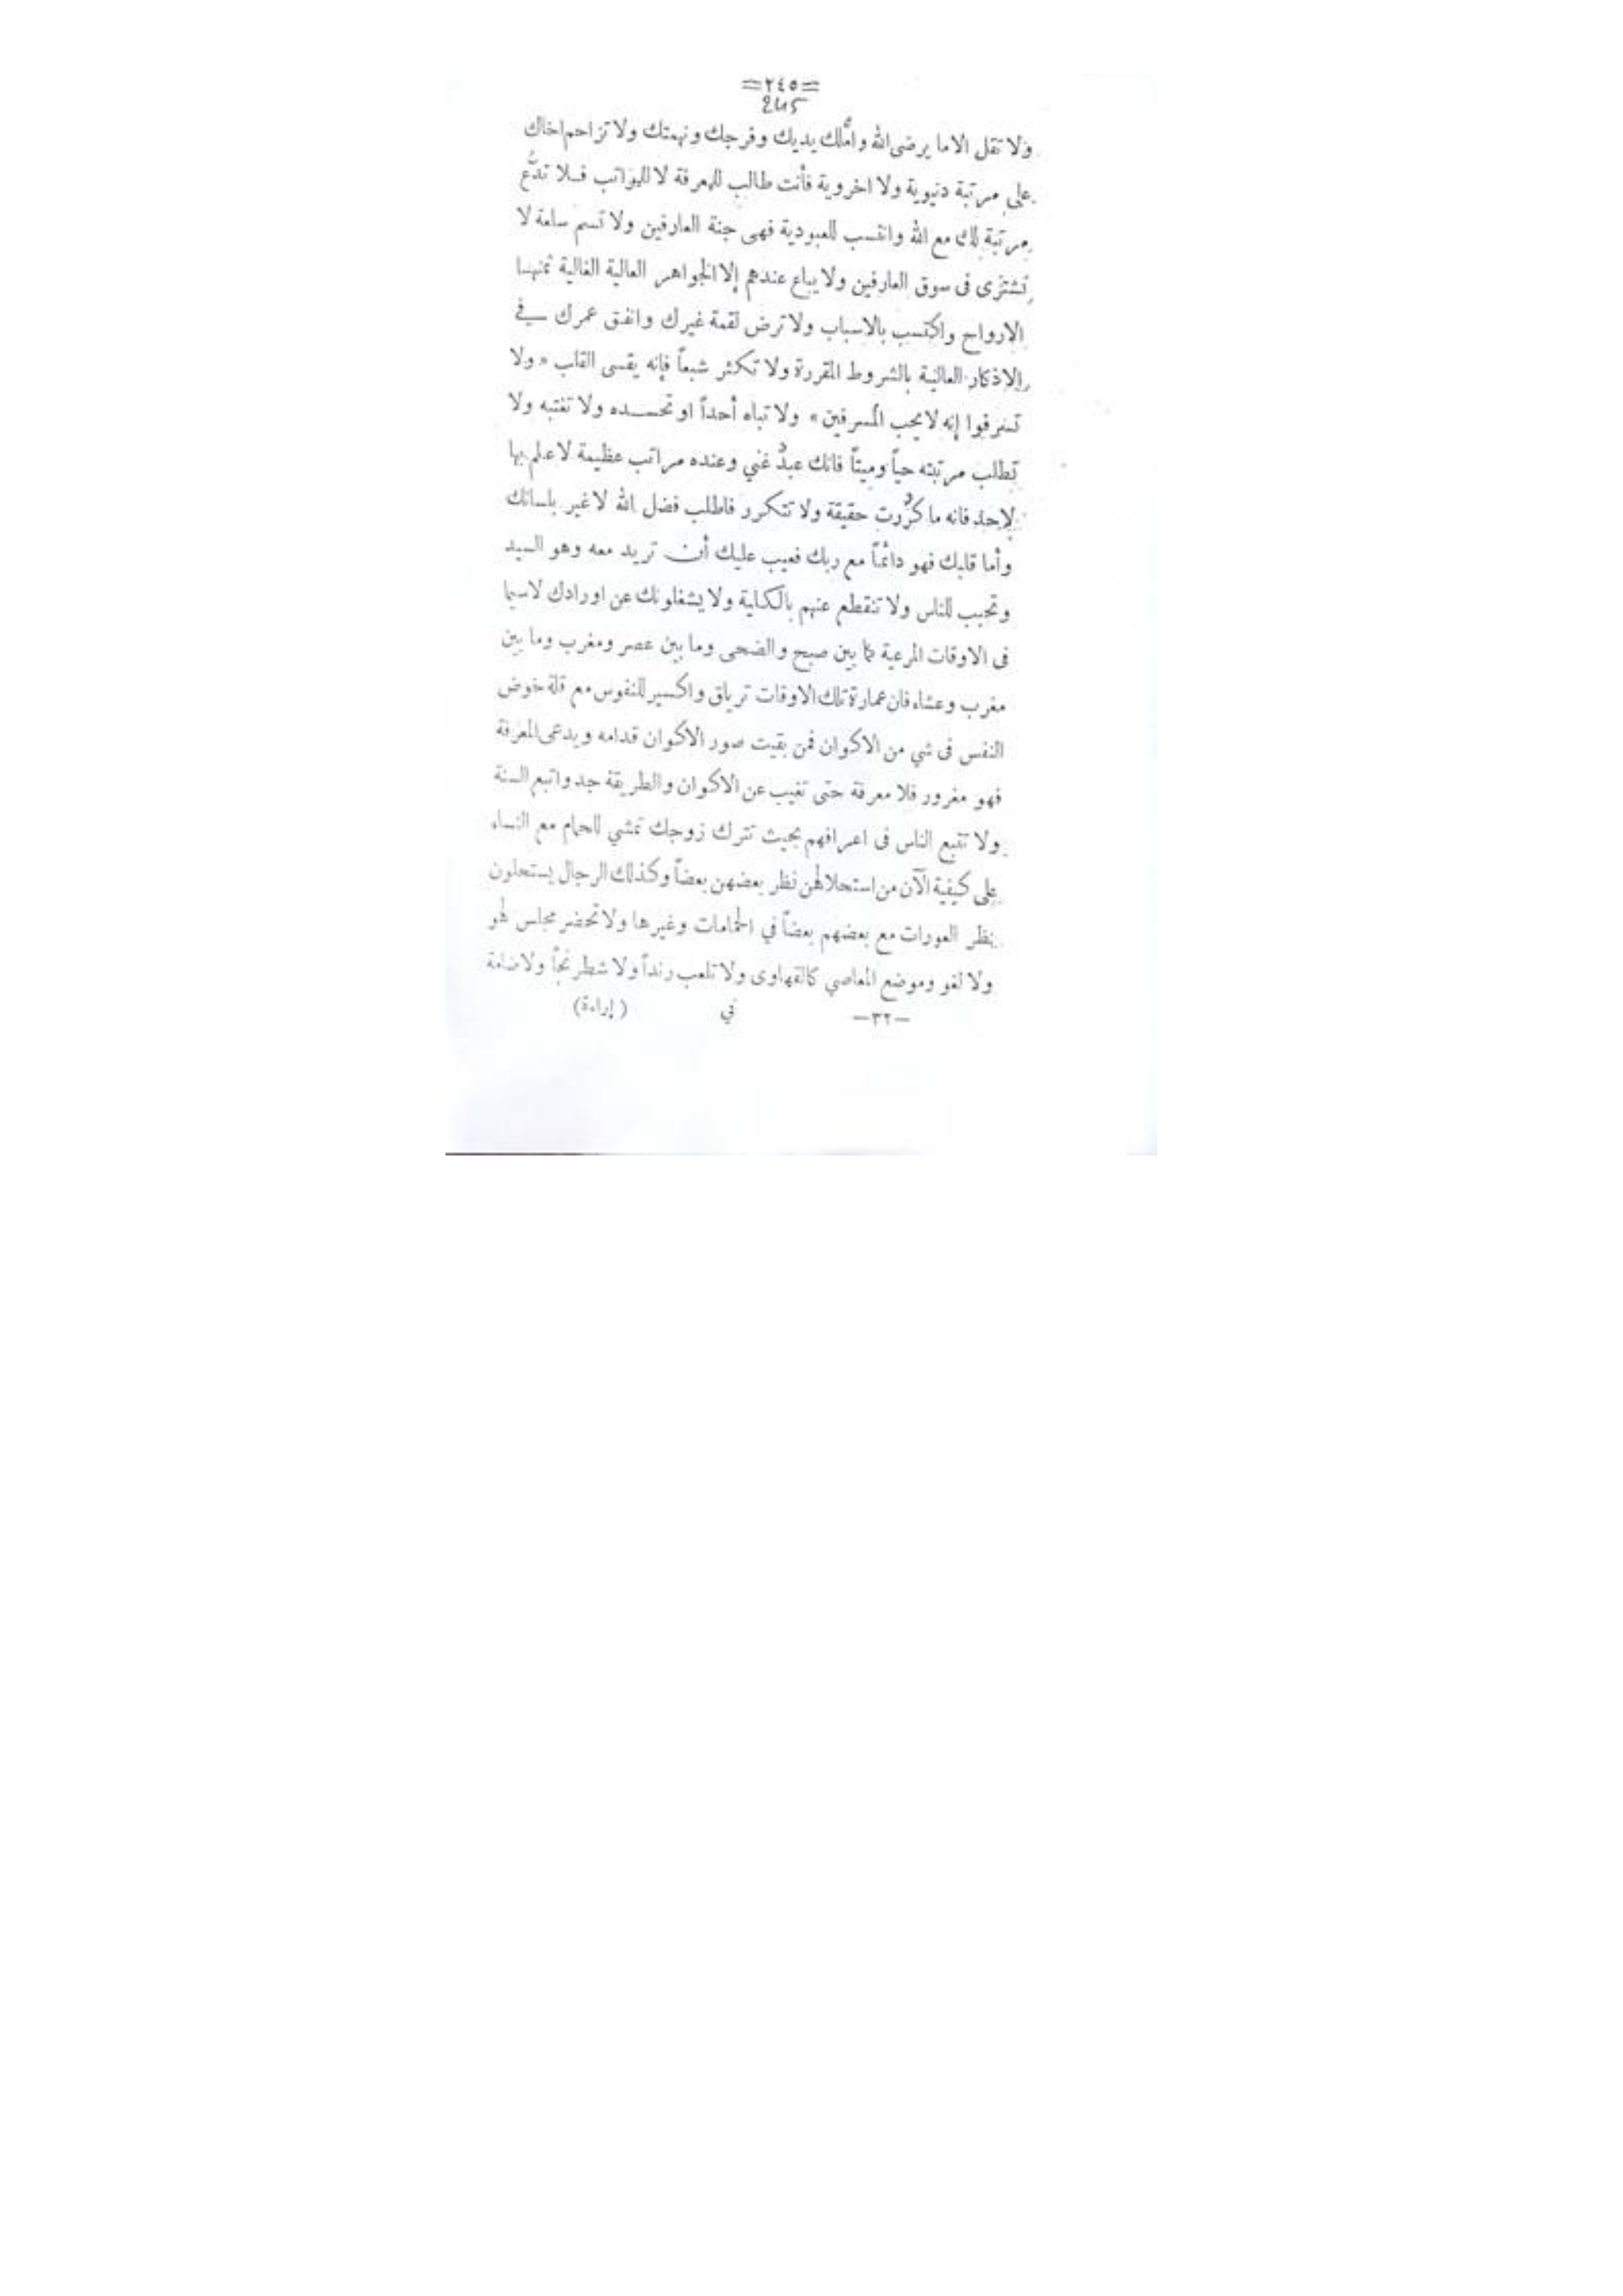 =٢٤٥=
245
ولا تقل الا ما يرضى الله واملك يديك وفرجك ونهمتك ولا تزاحم اخاك
على مرتبة دنيوية ولا اخروية فأنت طالب للمعرفة لا للمراتب فلا تدَّع
مرتبة لك مع الله وانتسب للعبودية فهى جنة العارفين ولا تسم سلعة لا
تشترى فى سوق العارفين ولا يباع عندهم إلا الجواهر العالية الغالية ثمنها
الارواح واكتسب بالاسباب ولا ترض لقمة غيرك وانفق عمرك في
الاذكار العالية بالشروط المقررة ولا تكثر شبعاً فإنه يقسى القلب «ولا
تسرفوا إنه لا يحب المسرفين» ولا تباه أحداً او تحسده ولا تغتبه ولا
تطلب مرتبته حياً وميتاً فانك عبدُ غني وعنده مراتب عظيمة لا علم بها
لاحد فانه ما كرُّرت حقيقة ولا تتكرر فاطلب فضل الله لا غير بلسانك
وأما قلبك فهو دائماً مع ربك فعيب عليك أن تريد معه وهو السيد
وتحبب للناس ولا تنقطع عنهم بالكلية ولا يشغلونك عن اورادك لاسيما
فى الاوقات المرعية مما بين صبح والضحى وما بين عصر ومغرب وما بين
مغرب وعشاء فان عمارة تلك الاوقات ترياق واكسير للنفوس مع قلة خوض
النفس فى شي من الاكوان فمن بقيت صور الاكوان قدامه ويدعى المعرفة
فهو مغرور فلا معرفة حتى تغيب عن الاكوان والطريقة جد واتبع السنة
ولا تتبع الناس فى اعرافهم بحيث تترك زوجك تمشي للحمام مع النساء
على كيفية الآن من استحلالهن نظر بعضهن بعضاً وكذلك الرجال يستحلون
نظر العورات مع بعضهم بعضاً في الحمامات وغيرها ولا تحضر مجلس لهو
ولا لغو وموضع المعاصي كالقهاوى ولا تلعب رنداً ولا شطرنجاً ولا ضامة
—٣٢— في (إراءة)